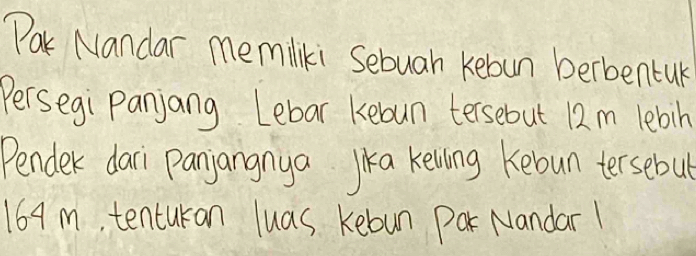 Pak Nandar memiliki sebuah kebun berbentuk
Persegi panjang. Lebar kebun tersebut 12 m lebih
Pendek dari panjangnya. Jika keliling kebun tersebut
164 m, tentukan luas kebun Pak Nandar!